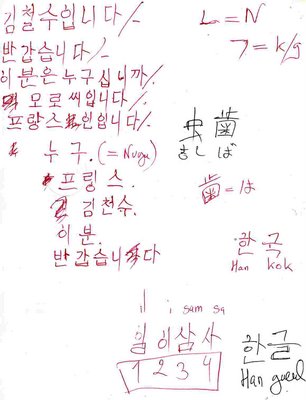 김철수입니다/~
ㄴ = N
반갑습니다/~
ㄱ = k/g
이분은 누구십니까/
모로씨입니다/~
프랑스인입니다/~
虫歯
むしば
누구. (= Nugu)
프링스.
歯 = は
김천수.
이분.
한국
반갑습니다
Han kok
il i sam sa
일이삼사
1 2 3 4
한글
Han gueul